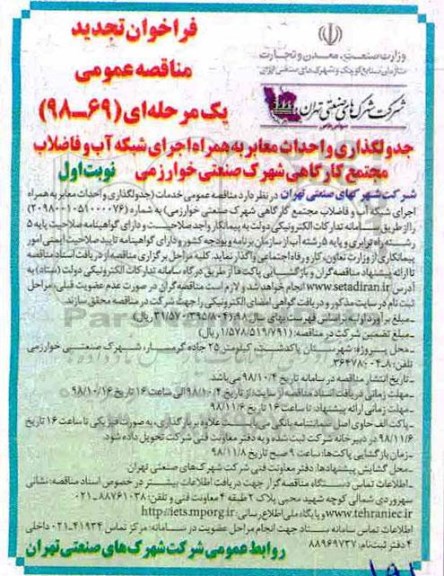 فراخوان تجدید
مناقصه عمومی
یک مرحله‌ای (۶۹-۹۸)
وزارت صنعت، معدن و تجارت
سازمان صنایع کوچک و شهرک‌های صنعتی ایران
شرکت شهرک‌های صنعتی تهران
جدولگذاری و احداث معابر به همراه اجرای شبکه آب و فاضلاب
مجتمع کارگاهی شهرک صنعتی خوارزمی نوبت اول
شرکت شهرکهای صنعتی تهران در نظر دارد مناقصه عمومی خدمات (جدولگذاری و احداث معابر به همراه
اجرای شبکه آب و فاضلاب مجتمع کارگاهی شهرک صنعتی خوارزمی) به شماره (۲۰۹۸۰۰۱۰۵۹۰۰۰۰۷۶)
را از طریق سامانه تدارکات الکترونیکی دولت به پیمانکار واجد صلاحیت و دارای گواهینامه صلاحیت پایه ۵
رشته راه و ترابری و پایه ۵ رشته آب از سازمان برنامه و بودجه کشور و دارای گواهینامه تایید صلاحیت ایمنی امور
پیمانکاری از وزارت تعاون، کار و رفاه اجتماعی واگذار نماید. کلیه مراحل برگزاری مناقصه از دریافت اسناد مناقصه
تا ارائه پیشنهاد مناقصه‌گران و بازگشایی پاکت‌ها از طریق درگاه سامانه تدارکات الکترونیکی دولت (ستاد) به
آدرس www.setadiran.ir انجام خواهد شد و لازم است مناقصه‌گران در صورت عدم عضویت قبلی، مراحل
ثبت نام در سایت مذکور و دریافت گواهی امضای الکترونیکی را جهت شرکت در مناقصه محقق سازند.
- مبلغ برآورد اولیه براساس فهرست بهای سال ۹۸:
- مبلغ تضمین شرکت در مناقصه: (۱/۵۷۸/۵۱۹/۷۹۱ ریال)
- محل پروژه: شهرستان پاکدشت، کیلومتر ۲۵ جاده گرمسار، شهرک صنعتی خوارزمی
تلفن:
- تاریخ انتشار مناقصه در سامانه تاریخ ۹۸/۱۰/۴ می‌باشد.
- مهلت زمانی دریافت اسناد مناقصه از سایت: از تاریخ ۹۸/۱۰/۴ الی ساعت ۱۶ تاریخ ۹۸/۱۰/۱۶
- مهلت زمانی ارائه پیشنهاد: تا ساعت ۱۶ تاریخ ۹۸/۱۱/۶
- پاکت الف حاوی اصل ضمانتنامه بانکی می‌بایست علاوه بر بارگذاری، به صورت فیزیکی تا ساعت ۱۶ تاریخ
۹۸/۱۱/۶ در دبیرخانه شرکت ثبت شده و به دفتر معاونت فنی شرکت تحویل داده شود.
- زمان بازگشایی پاکت‌ها: ساعت ۹ صبح تاریخ ۹۸/۱۱/۸
- محل گشایش پیشنهادها: دفتر معاونت فنی شرکت شهرک‌های صنعتی تهران
- اطلاعات تماس دستگاه مناقصه‌گزار جهت دریافت اطلاعات بیشتر در خصوص اسناد مناقصه: نشانی:
سهروردی شمالی کوچه شهید محبی پلاک ۲ طبقه ۴ معاونت فنی و تلفن: ۸۸۷۶۱۰۳۸-۰۲۱
www.tehraniec.ir و پایگاه ملی اطلاع‌رسانی: http://iets.mporg.ir
اطلاعات تماس سامانه ستاد جهت انجام مراحل عضویت در سامانه: مرکز تماس ۴۱۹۳۴-۰۲۱ داخلی
۴ دفتر ثبت‌نام: ۸۸۹۶۹۷۳۷
روابط عمومی شرکت شهرک‌های صنعتی تهران